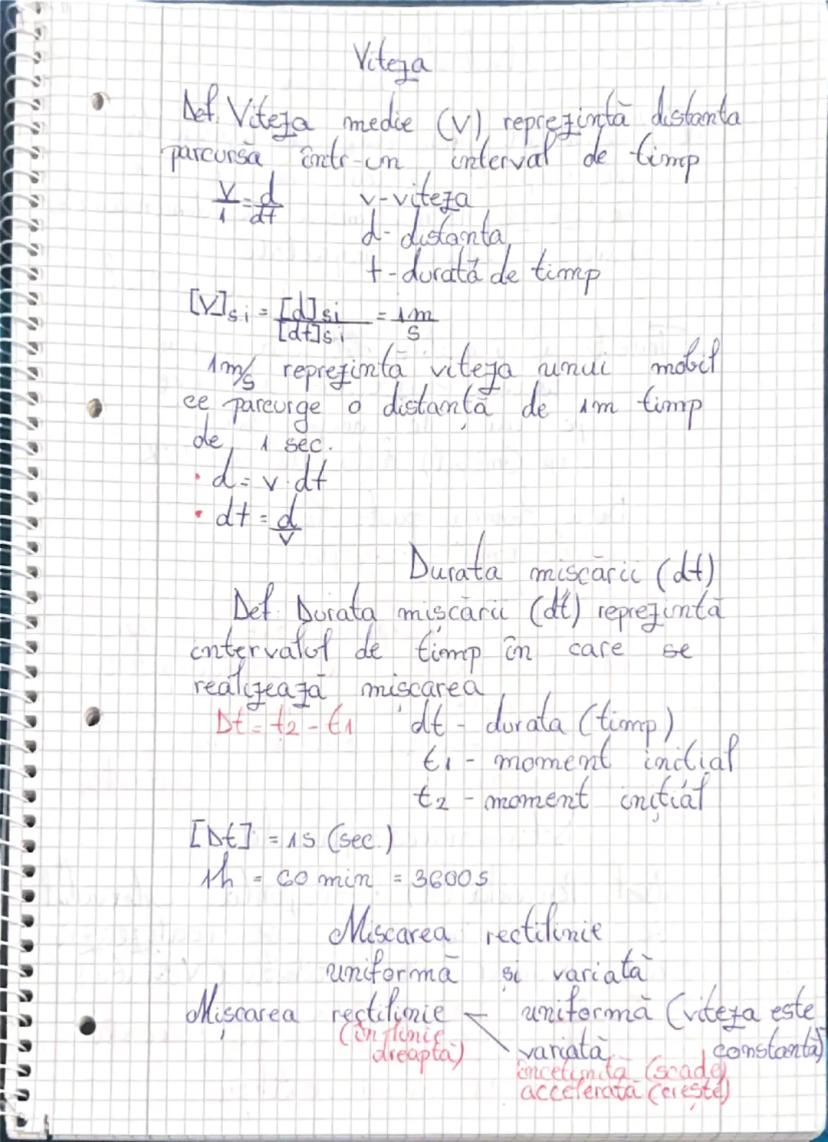 Viteza
Def. Viteza medie (V) reprezintă distanta
parcursă într-un interval de timp
V/1 = d/dt v-viteza
d-distanta
t-durată de timp
[V]si = [d]si/[dt]si = 1m/s
1m/s reprezintă viteza unui mobil
ce parcurge o distanță de 1m timp
de 1 sec.
• d = v·dt
• dt = d/v
Durata miscării (dt)
Def. Durata mișcării (dt) reprezintă
intervalul de timp în care se
realizează miscarea
Dt = t2 - t1 dt - durata (timp)
t1 - moment inițial
t2 - moment inițial
[Dt] = 1s (sec.)
1h = 60 min = 3600s
Miscarea rectilinie
uniformă și variată
Mișcarea rectilinie — uniformă (viteza este
(în linie variată constantă)
dreaptă) încetinită (scade)
accelerată (crește)